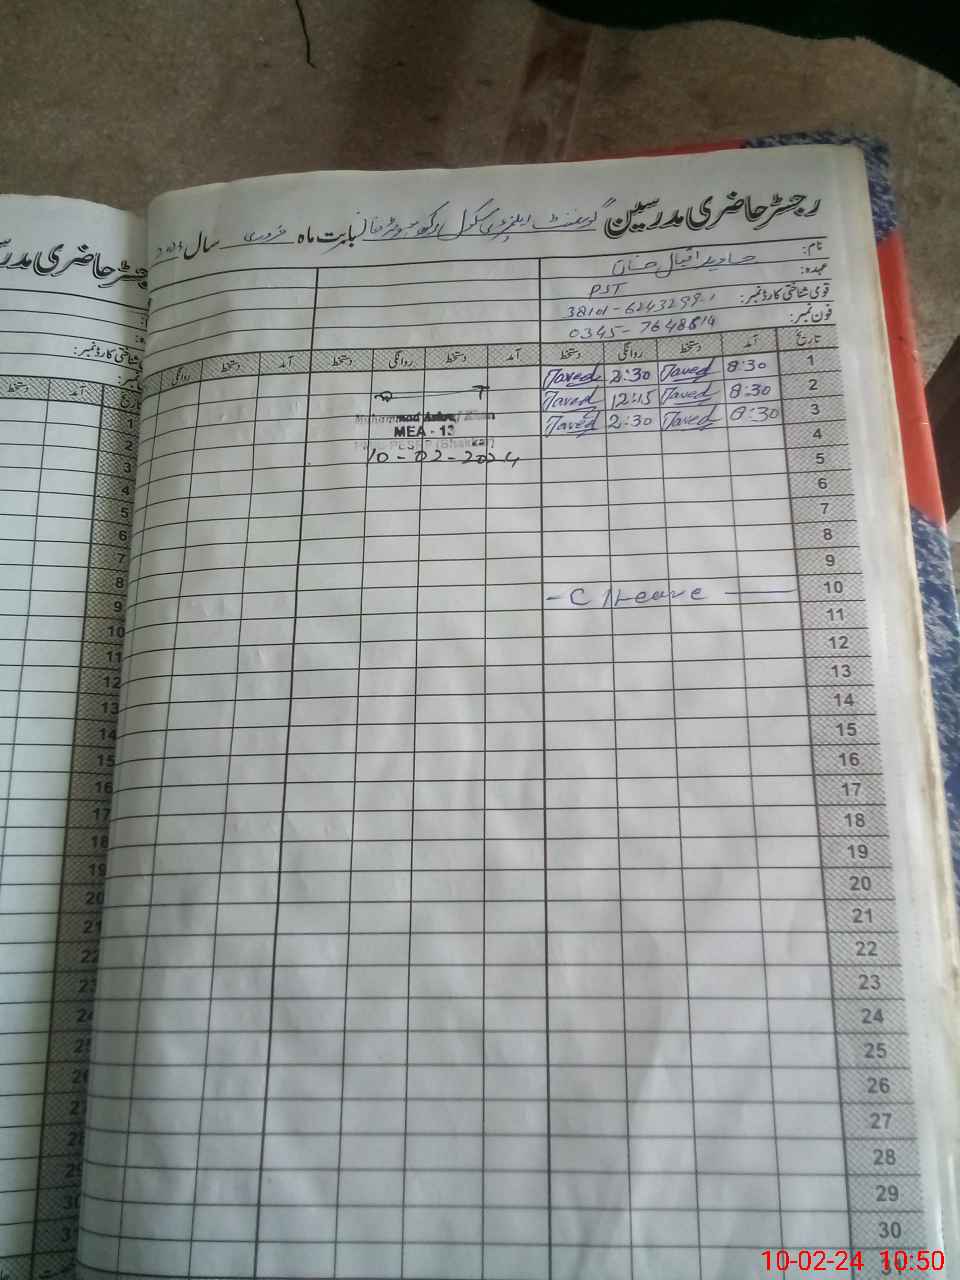 رجسٹر حاضری مدرسین گورنمنٹ ایلیمنٹری سکول بابت ماہ فروری سال
نام: جاوید اقبال خان
عہدہ: PST
قومی شناختی کارڈ نمبر:
فون نمبر: 0345-7648614
تاریخ آمد دستخط روانگی دستخط آمد دستخط روانگی دستخط آمد دستخط روانگی
1 8:30 Javed 2:30 Javed
2 8:30 Javed 12:15 Javed
3 8:30 Javed 2:30 Javed
Muhammad Ashraf Khan
MEA - 13
(Bhakkar)
10-02-2024
4
5
6
7
8
9
10 - C / Leave
11
12
13
14
15
16
17
18
19
20
21
22
23
24
25
26
27
28
29
30
31
رجسٹر حاضری
شناختی کارڈ نمبر:
تاریخ آمد دستخط
1
2
3
4
5
6
7
8
9
10
11
12
13
14
15
16
17
18
19
20
21
10-02-24 10:50